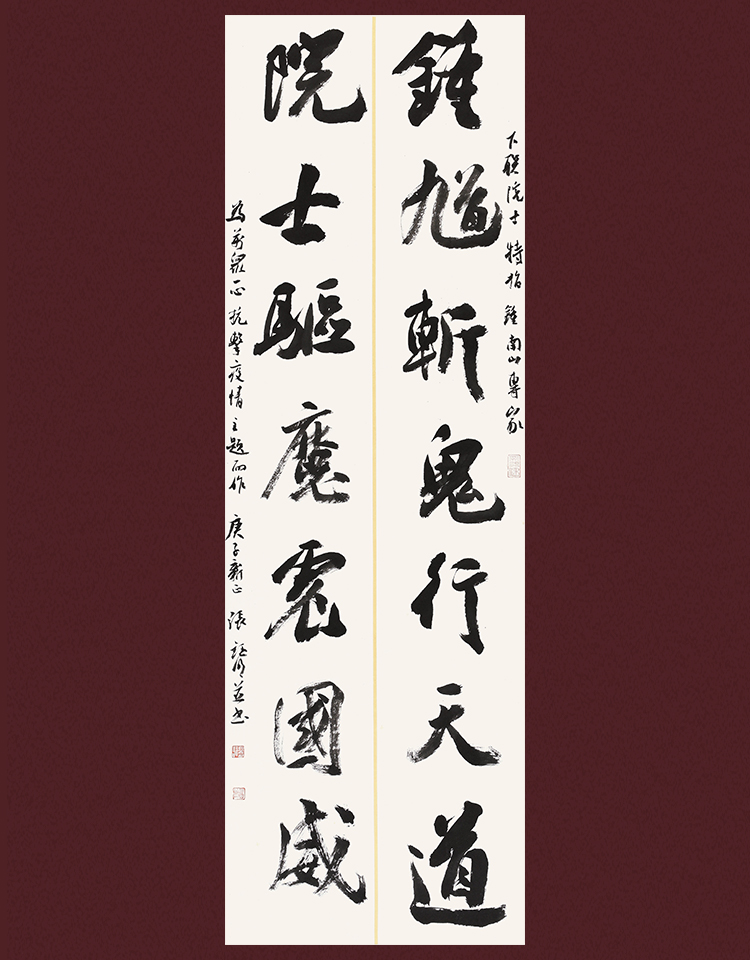 下聯院士特指鍾南山專家
鍾馗斬鬼行天道
院士驅魔震國威
為 正抗擊疫情主題而作 庚子新正 張 並書